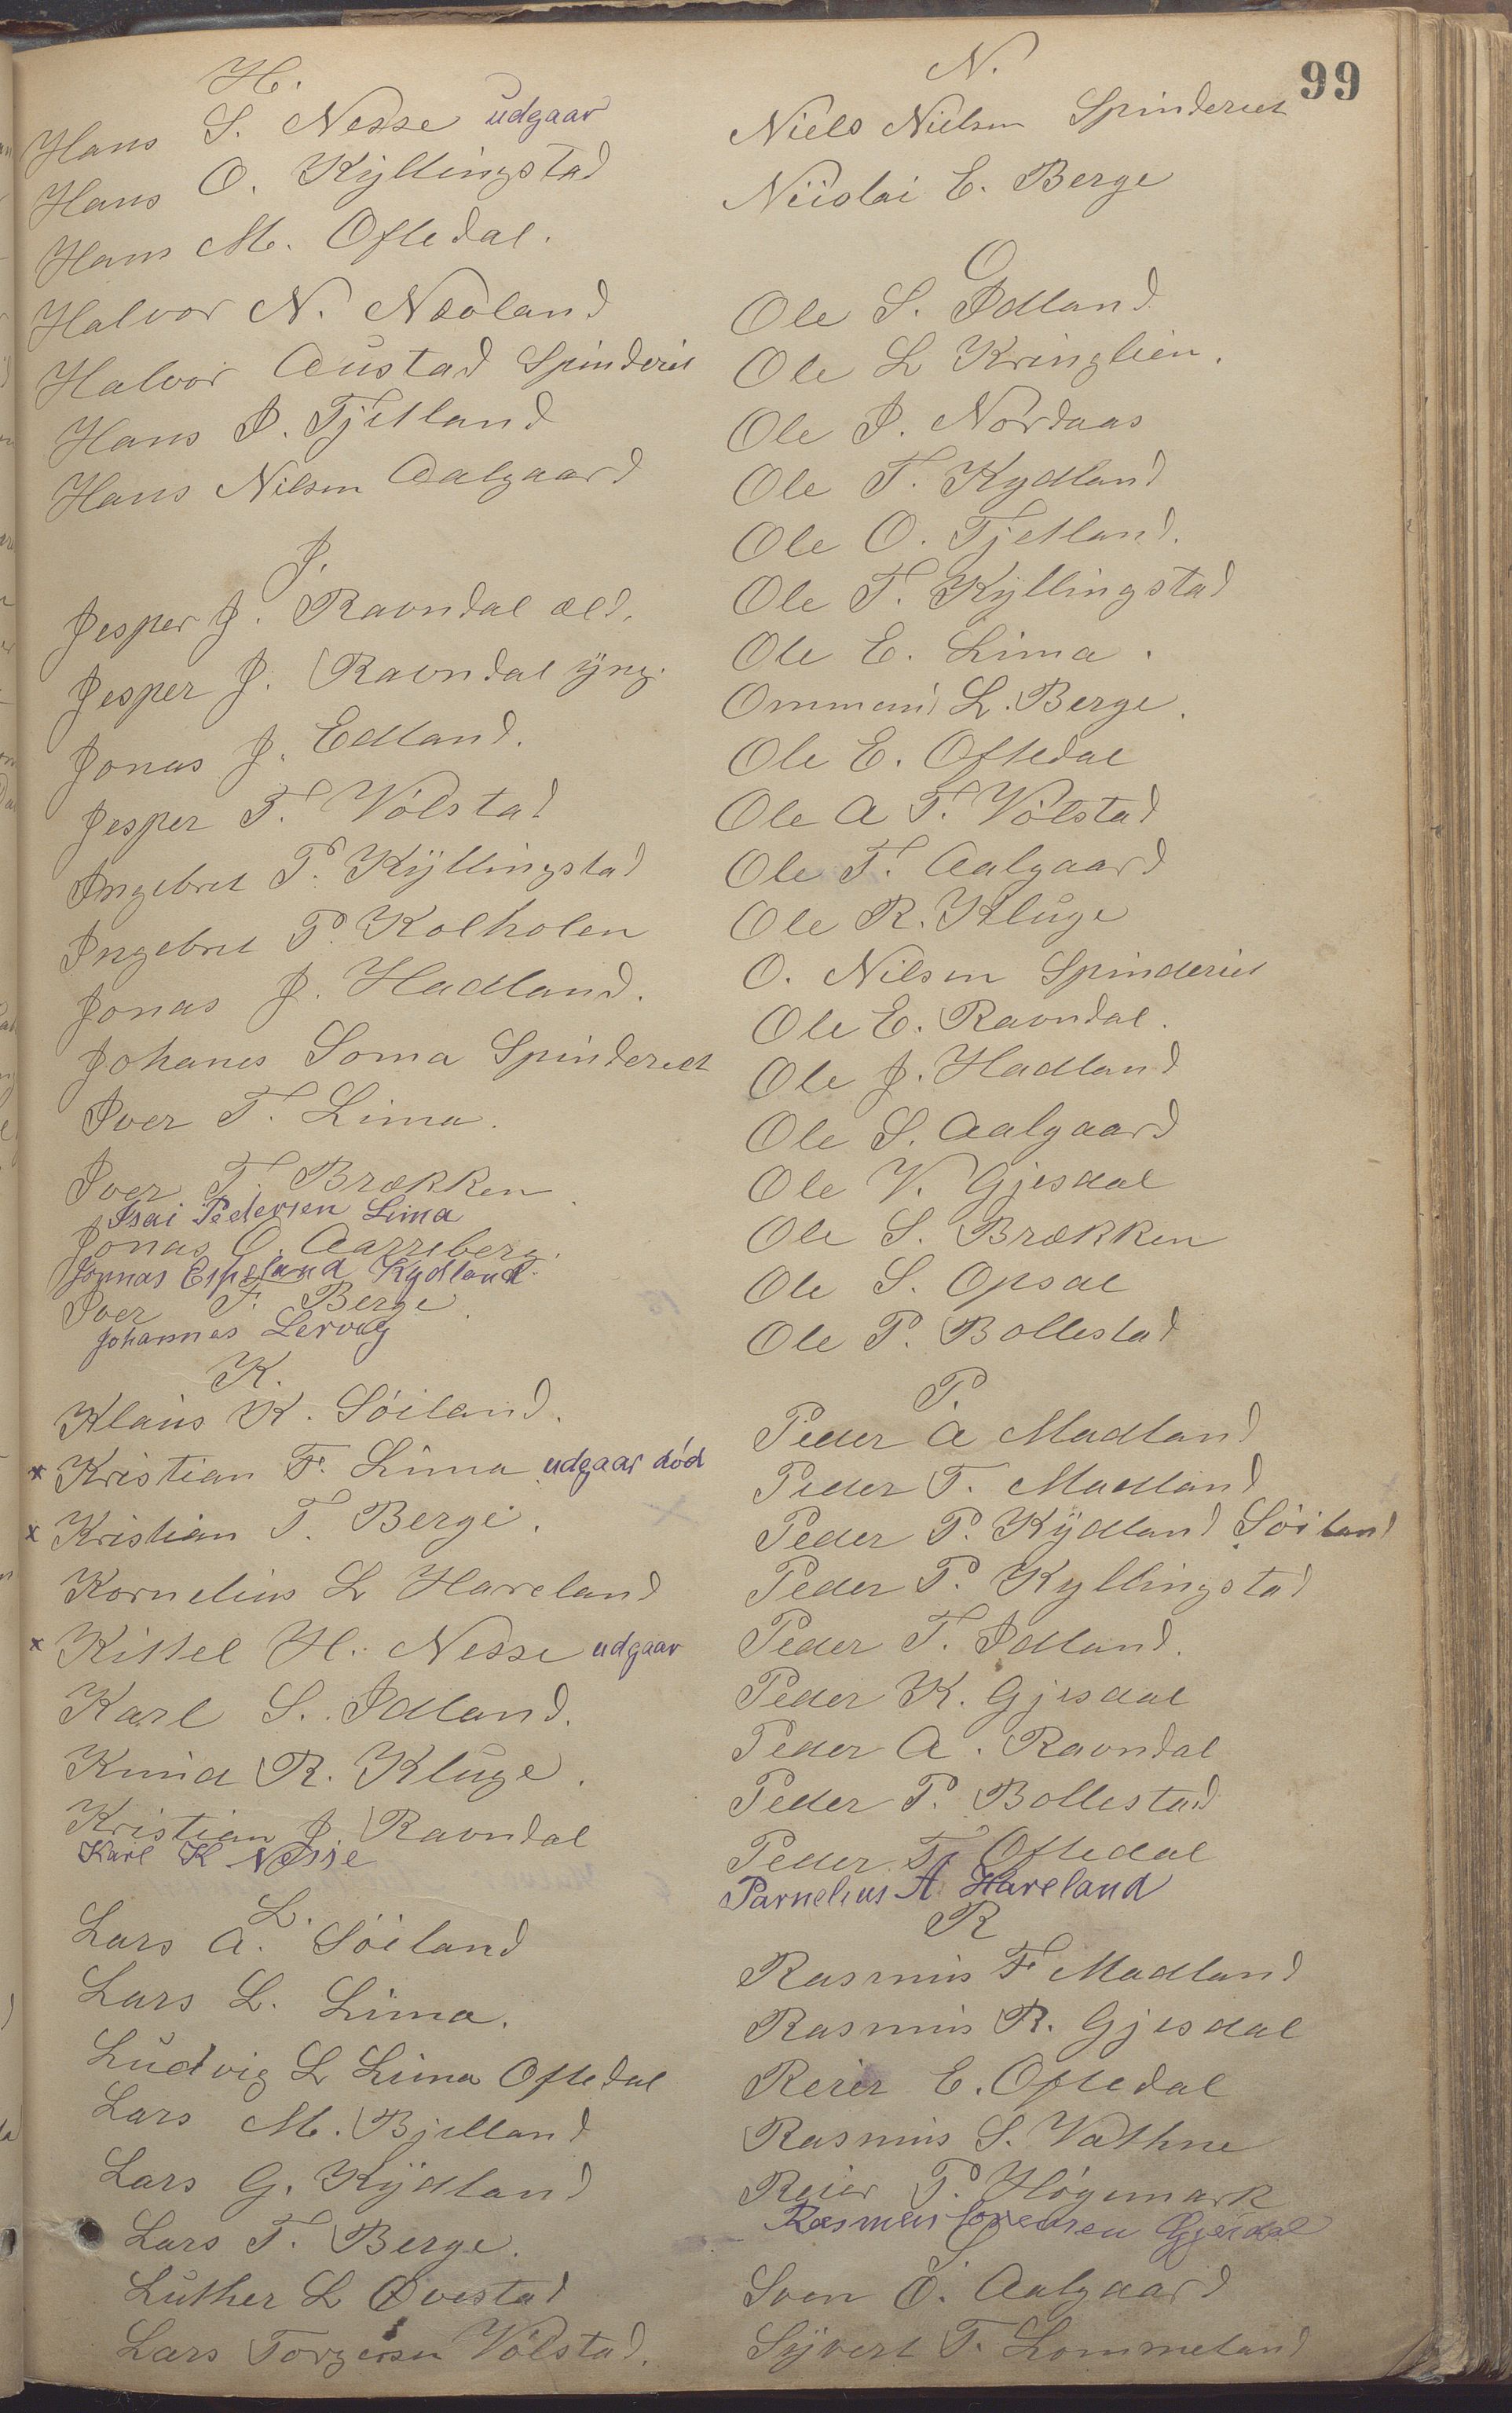 99
H.
Hans S. Nesse udgaar
Hans O. Kÿllingstad
Hans M. Oftedal.
Halvor N. Næoland
Halvor Austad Spinderiet
Hans I. Tjetland
Hans Nilsen Aalgaard
J.
Jesper J. Ravndal æld.
Jesper J. Ravndal ÿng.
Jonas J. Edland.
Jesper T. Volstad
Ingebret P. Kÿllingstad
Ingebret P. Kolholen
Jonas J. Hadland.
Johanes Soma Spinderiet
Iver T. Lima.
Iver T. Brækken
Isai Pedersen Lima
Jonas O. Aarreberg.
Jonnas Espeland Kydland
Iver F. Berge.
Johannes Lervig
K.
Klaus K. Söiland.
x Kristian F. Lima udgaar död
x Kristian T. Berge.
Kornelius L Haveland
x Kittel H. Nesse udgaar
Karl S. Idland.
Knud R. Kluge.
Kristian J. Ravndal
Karl K Nesse
L.
Lars A. Söiland
Lars L. Lima.
Ludvig L Lima Oftedal
Lars M. Bjelland
Lars G. Kÿdland
Lars T. Berge.
Luther L Øvestad
Lars Torgersen Volstad.
N.
Niels Nielsen Spinderiet
Nicolai E. Berge
O
Ole S. Idland
Ole L Kringlien.
Ole I. Nordaas
Ole T. Kydland
Ole O. Tjetland.
Ole T. Kyllingstad
Ole E. Lima.
Ommund L. Berge.
Ole E. Oftedal
Ole A T. Volstad
Ole T. Aalgaard
Ole R. Kluge
O. Nilsen Spinderiet
Ole E. Ravndal.
Ole J. Hadland
Ole S. Aalgaard
Ole V. Gjesdal
Ole S. Brækken
Ole S. Opsal
Ole P. Bollestad
P.
Peder A Madland
Peder T. Madland
Peder P. Kÿdland Söiland
Peder P. Kyllingstad
Peder T. Idland.
Peder K. Gjesdal
Peder A. Ravndal
Peder P. Bollestad
Peder T. Oftedal
Parnelius A Haveland
R
Rasmus F Madland
Rasmus R. Gjesdal
Reier E. Oftedal
Rasmus S. Vathne
Reier P. Högemark
Rasmus Sorensen Gjesdal
S.
Sven O. Aalgaard
Sÿvert T. Lommeland